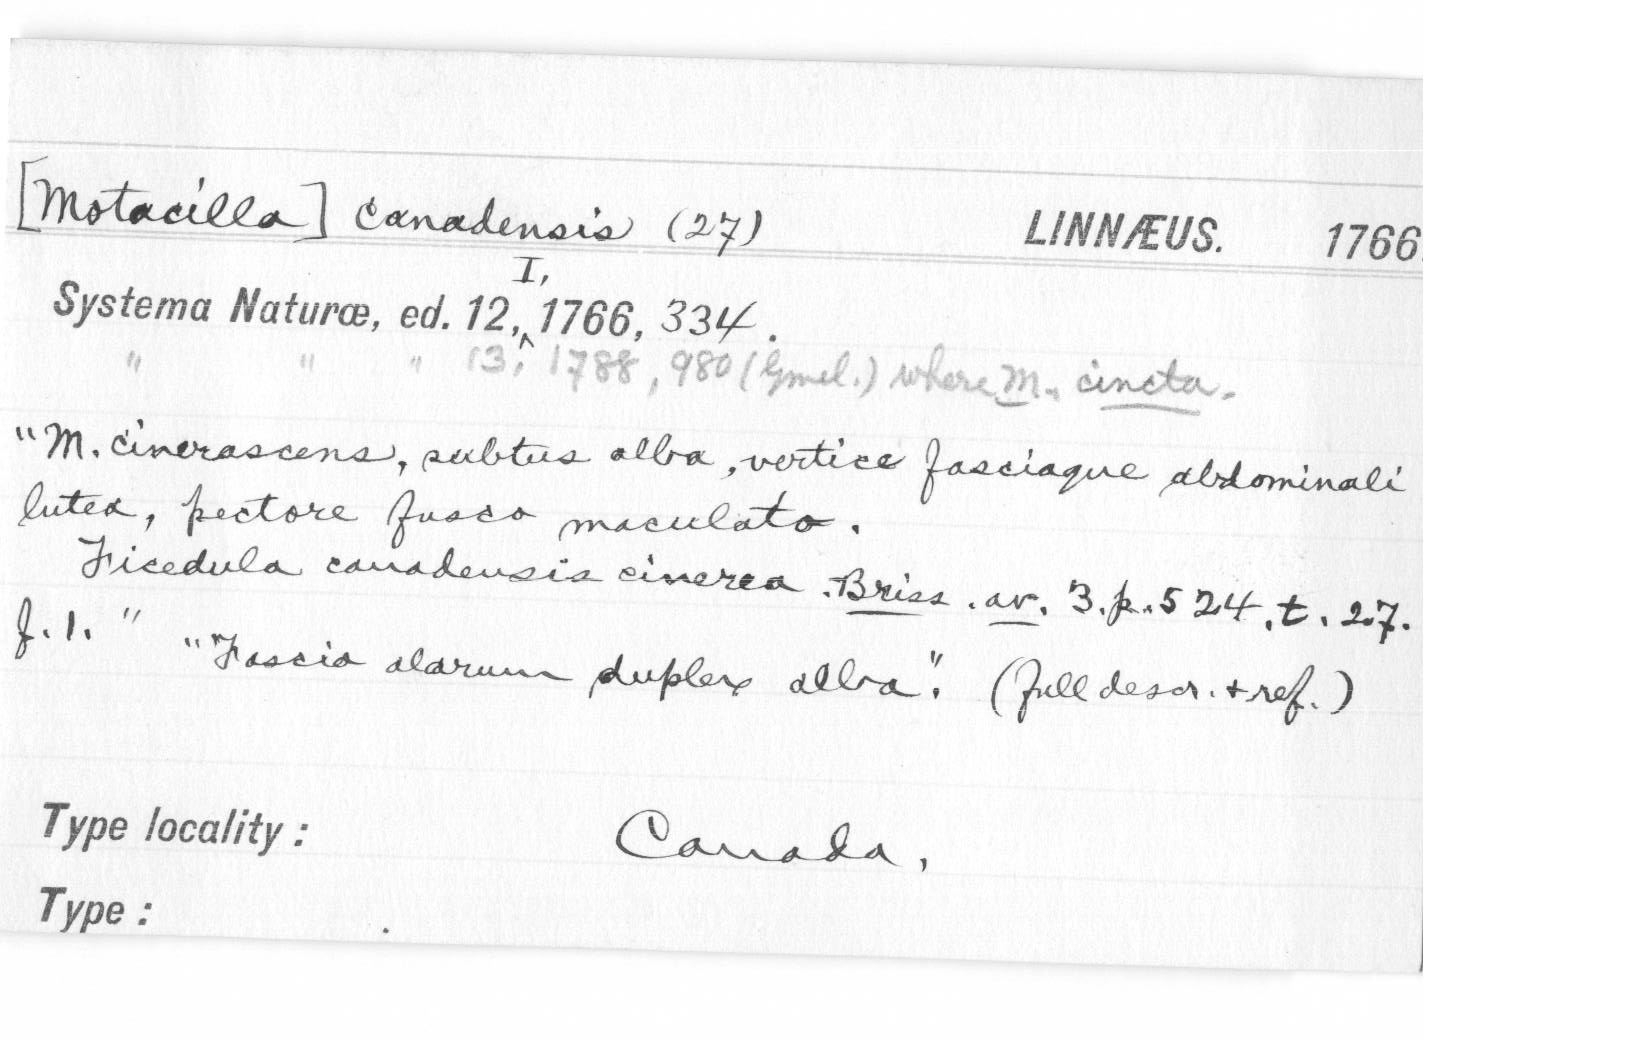 [Motacilla] canadensis (27) LINNÆUS. 1766.
Systema Naturæ, ed. 12, I, 1766, 334.
" " " 13, 1788, 980 (Gmel.) where M. cincta.
"M. cinerascens, subtus alba, vertice fasciaque abdominali
lutea, pectore fusco maculato.
Ficedula canadensis cinerea. Briss. av. 3. p. 524, t. 27.
f. 1."
"Fascia alarum duplex alba". (full descr. + ref.)
Type locality: Canada,
Type: